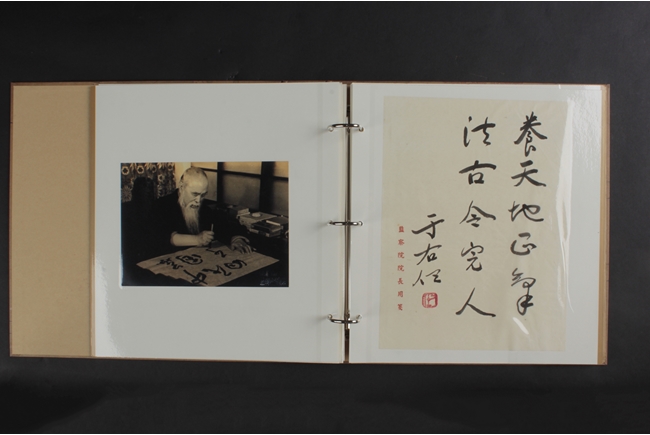 養天地正氣
法古今完人
于右任
監察院院長用箋